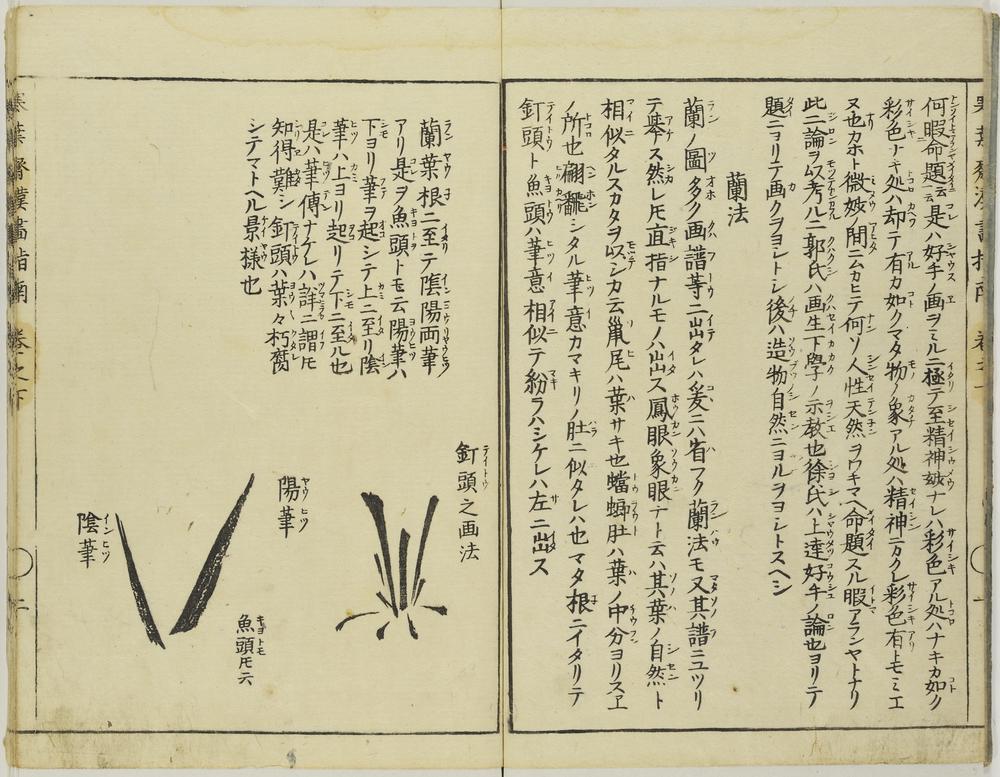 何暇命題云云是ハ好手ノ画ヲミルニ極テ至精神妙ナレハ彩色アル処ハナキカ如ク
彩色ナキ処ハ却テ有カ如クマタ物ノ象アル処ハ精神ニカクレ彩色有トモミエ
又也カホト微妙ノ間ニムカヒテ何ソ人性天然ヲワキマヘ命題スル暇アランヤトナリ
此二論ヲ以考ルニ郭氏ハ画生下學ノ示教也徐氏ハ上達好手ノ論也ヨリテ
題ニヨリテ画クヲヨシトシ後ハ造物自然ニヨルヲヨシトスヘシ
蘭法
蘭ノ圖多ク画譜等ニ出タレハ爰ニハ省フク蘭法モ又其譜ニユツリ
テ挙ス然レ𪜈直指ナルモノハ出ス鳳眼象眼ナトト云ハ其葉ノ自然ト
相似タルスカタヲ以シカ云鼠尾ハ葉サキ也蟷螂肚ハ葉ノ中分ヨリスヱ
ノ所也翩翻シタル筆意カマキリノ肚ニ似タレハ也マタ根ニイタリテ
釘頭ト魚頭ハ筆意相似テ紛ラハシケレハ左ニ出ス
蘭葉根ニ至テ陰陽両筆
アリ是ヲ魚頭トモ云陽筆ハ
下ヨリ筆ヲ起シテ上ニ至リ陰
筆ハ上ヨリ起リテ下ニ至ル也
是ハ筆傳ナケレハ詳ニ謂𪜈
知得難シ釘頭ハ葉々朽腐
シテマトヘル景様也
釘頭之画法
陽筆
魚頭𪜈云
陰筆
寒葉齋漢畫指南 巻之下